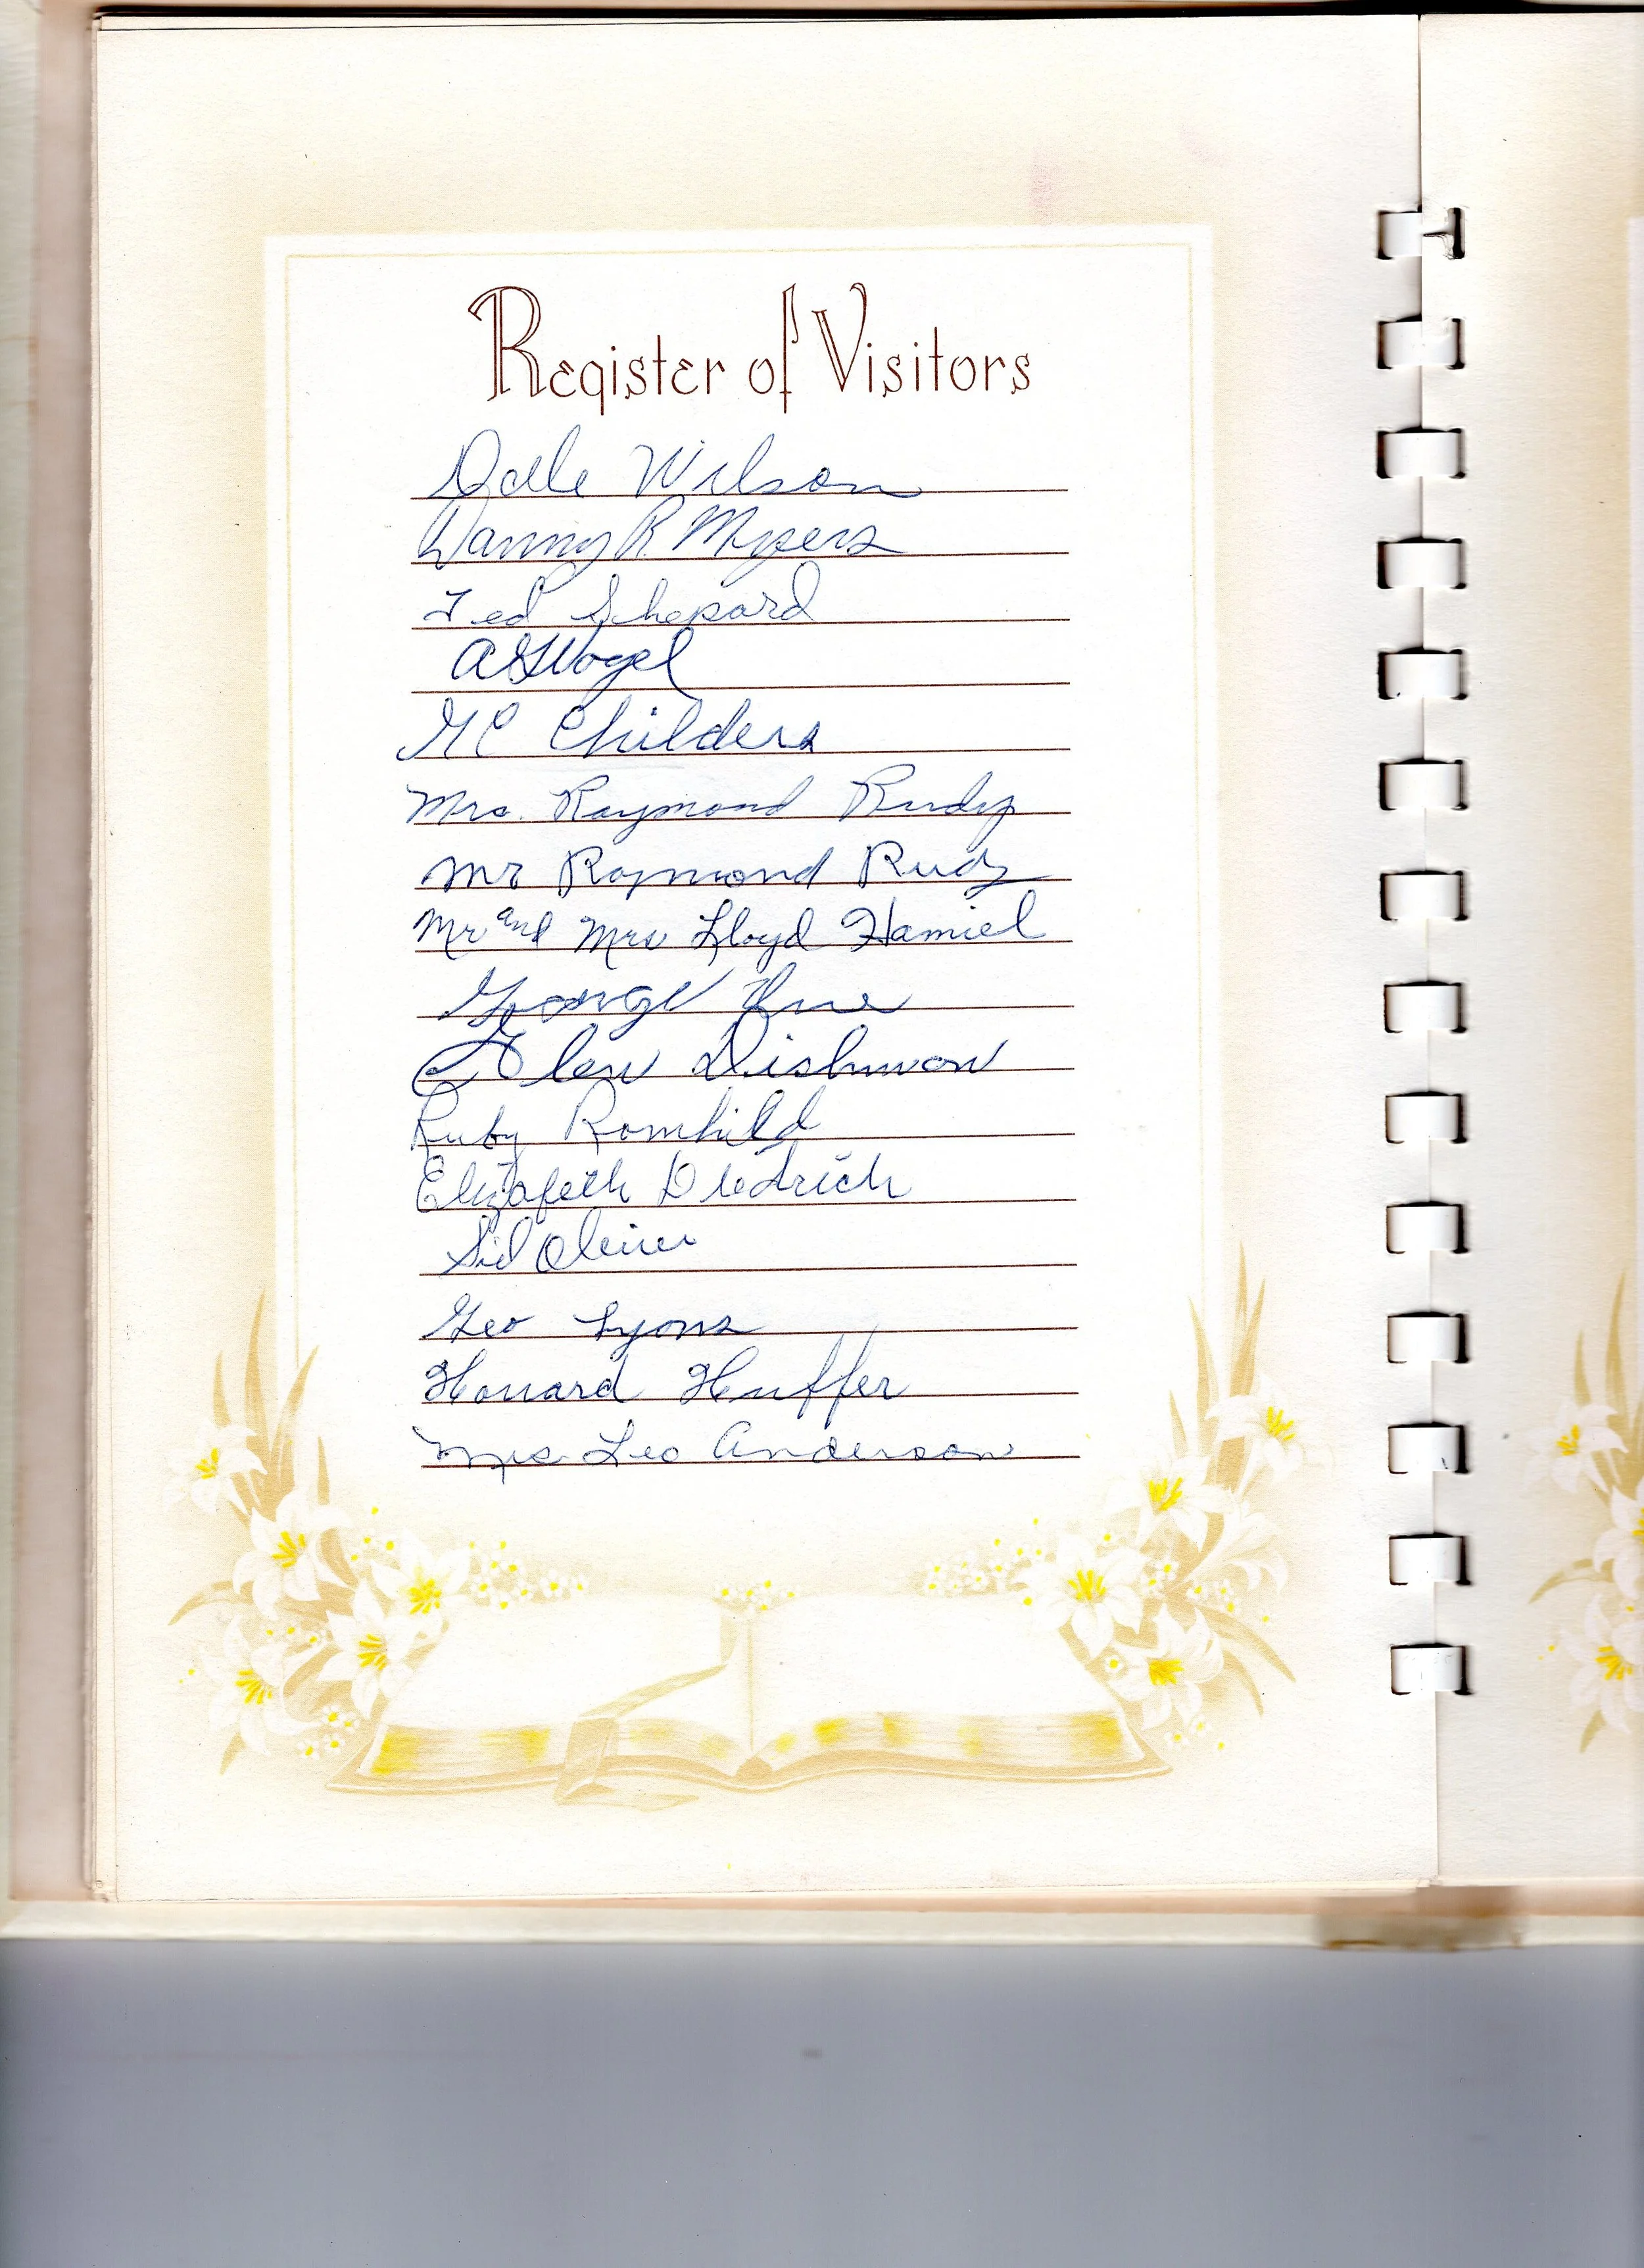 Register of Visitors
Dale Wilson
Danny R. Myers
Ted Shepard
Vogel
Childers
Mrs. Raymond Rudy
Mr Raymond Rudy
Mr and Mrs Lloyd Hamiel
George
Glen Dishmon
Ruby Romhild
Elizabeth Diedrich
Sid
Geo Lyons
Howard Huffer
Mrs Leo Anderson